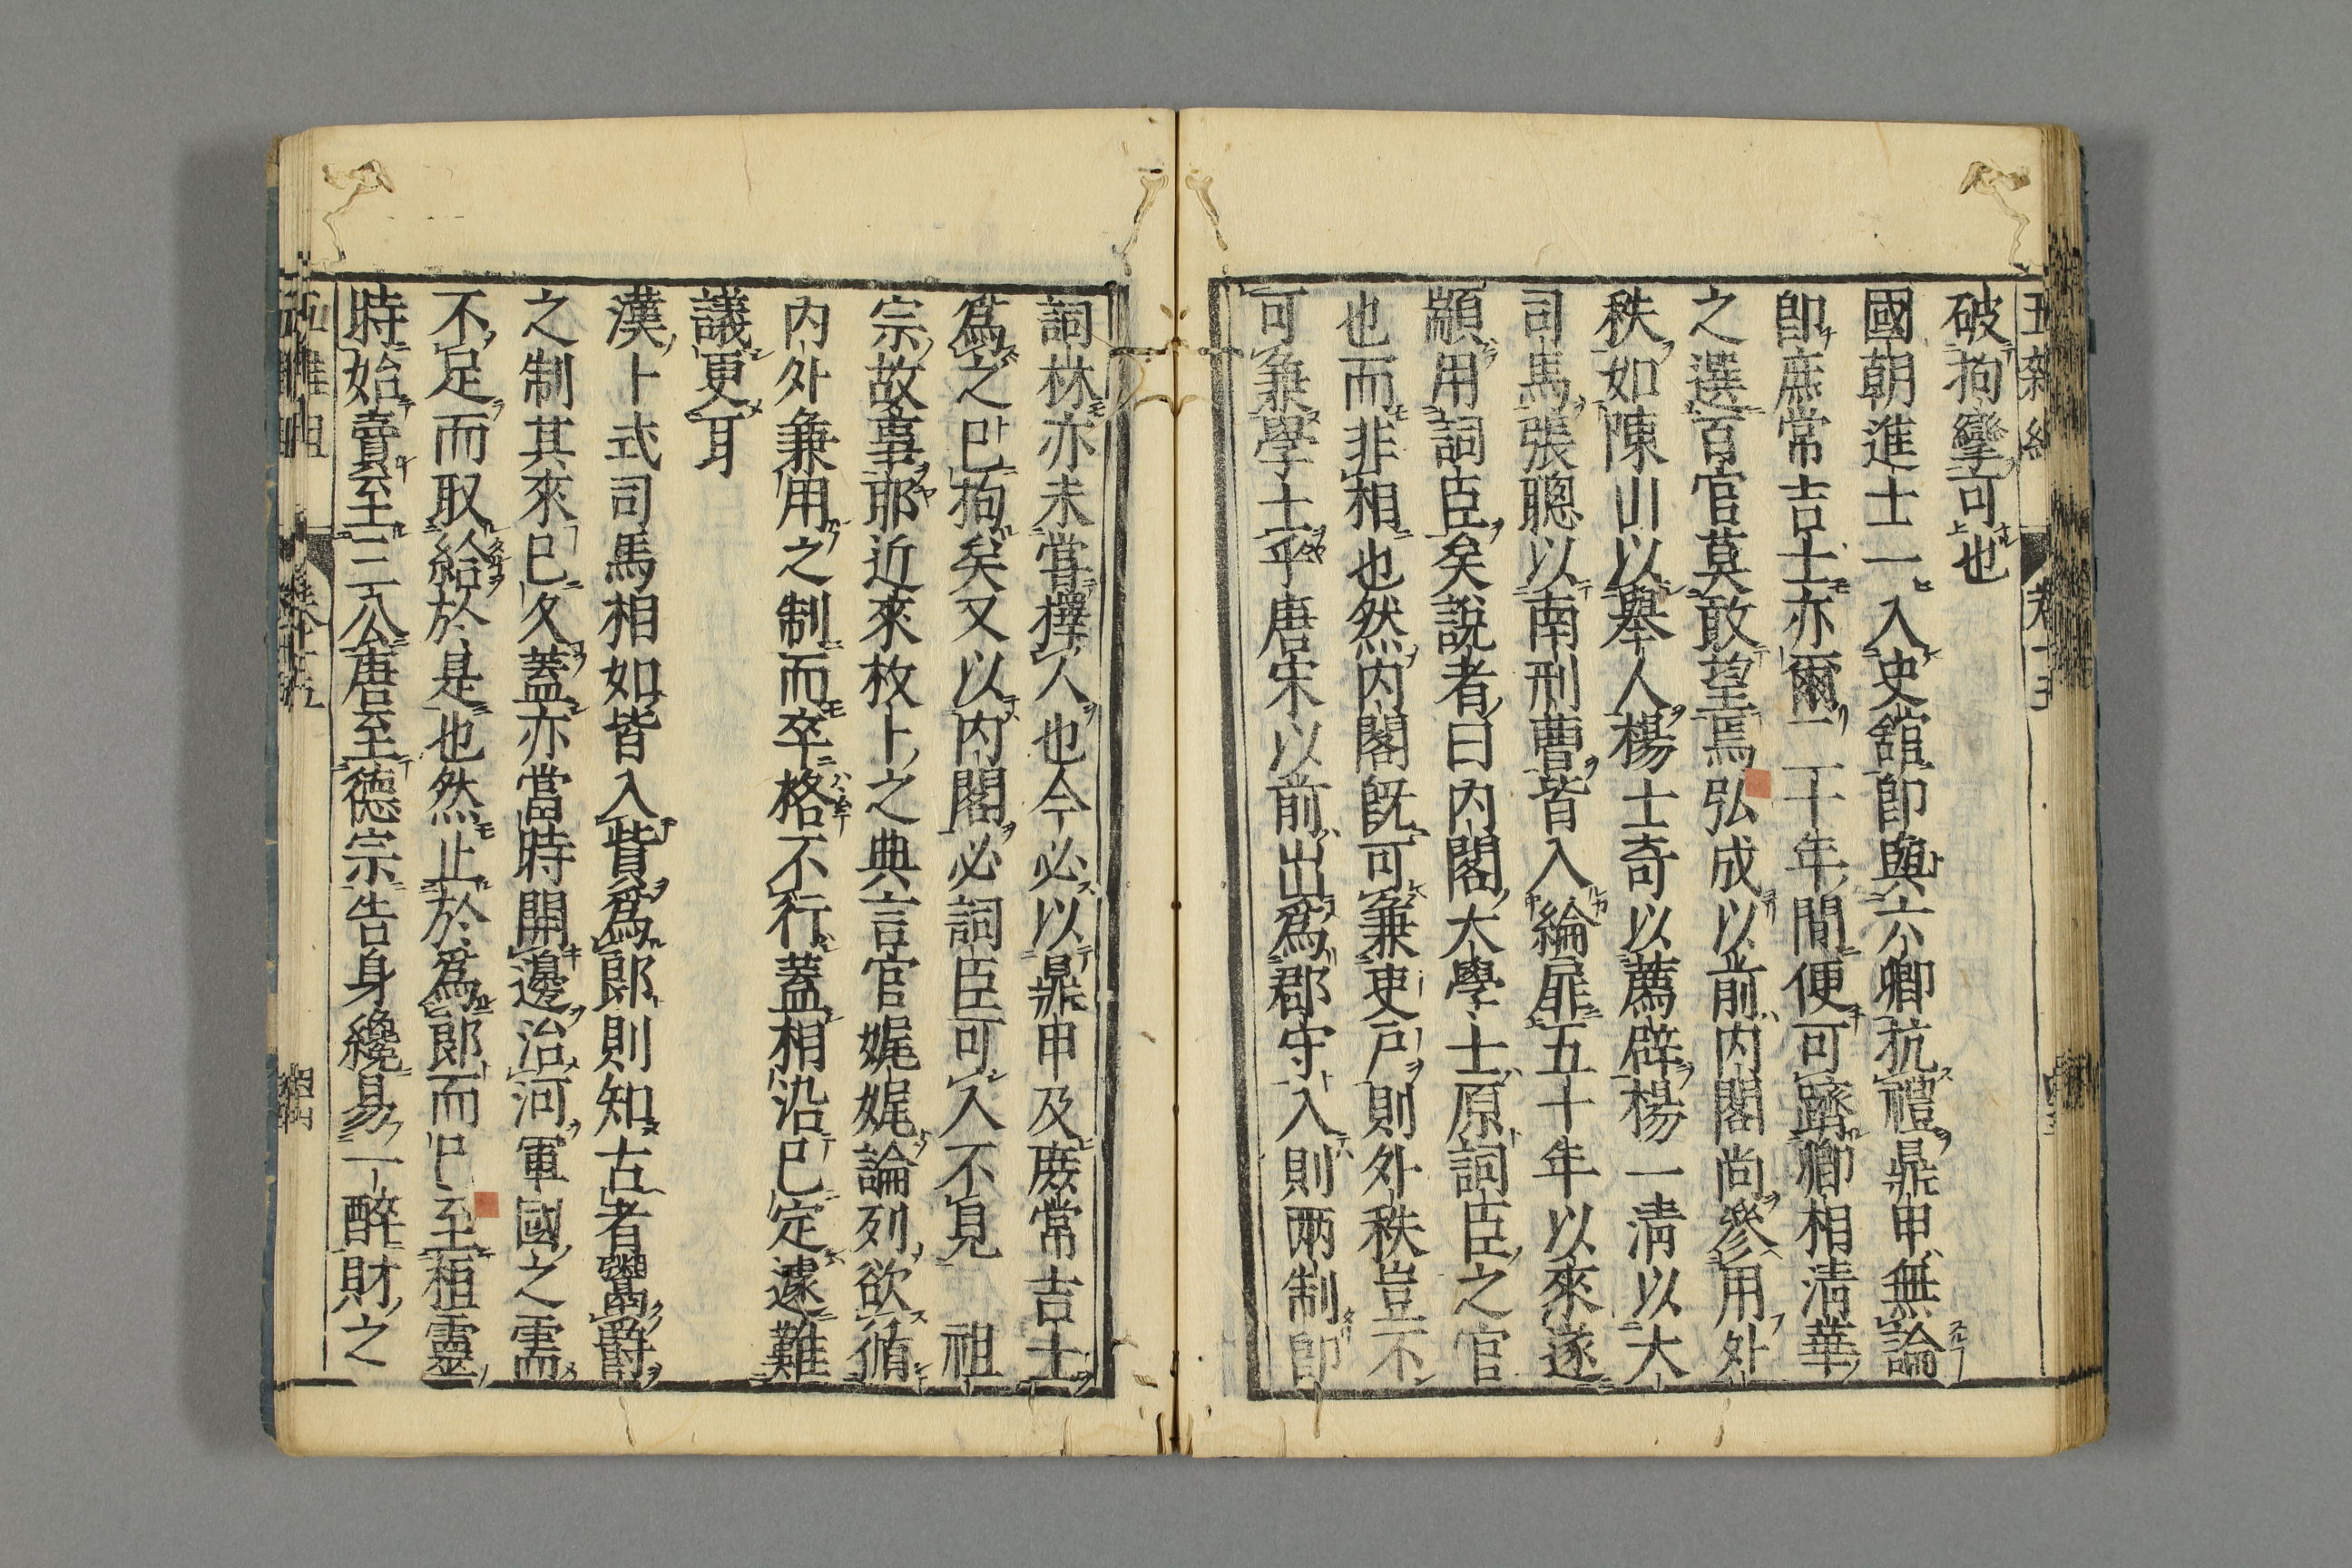 破拘攣可也
國朝進士一入史舘即與六卿抗禮鼎甲無論
即庶常吉士亦爾一二十年間便可躋卿相清華
之選百官莫敢望焉弘成以前内閣尚參用外
秩如陳山以舉人楊士奇以薦辟楊一清以大
司馬張聰以南刑曹皆入綸扉五十年以來遂
顓用詞臣矣說者曰内閣大學士原詞臣之官
也而非相也然内閣既可兼吏戸則外秩豈不
可兼學士乎唐宋以前出爲郡守入則兩制即
詞林亦未嘗擇人也今必以鼎甲及庻常吉士
爲之已拘矣又以内閣必詞臣可入不見　祖
宗故事耶近來枚卜之典言官娓娓論列欲循
内外兼用之制而卒格不行蓋相沿已定遽難
議更耳
漢卜式司馬相如皆入貲爲郎則知古者鬻爵
之制其來已久蓋亦當時開邊治河軍國之需
不足而取給於是也然止於爲郎而已至桓靈
時始賣至三公唐至德宗告身纔易一醉財之